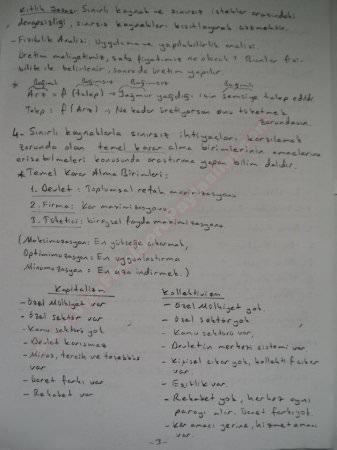 Kıtlık Yasası: Sınırlı kaynak ve sınırsız istekler arasındaki
dengesizliği, sınırsız kaynakları kısıtlayarak çözmektir.
- Fizibilik Analizi: Uygulama ve yapılabilirlik analizi.
Üretim maliyetimiz, satış fiyatımız ne olacak? Bunlar fizi-
bilite ile belirlenir, sonra da üretim yapılır.
Bağımlı Bağımsız Bağımsız Bağımlı
* Arz = f (talep) → Yağmur yağdığı için Şemsiye talep edildi.
Talep = f (Arz) → Ne kadar üretiyorsan onu tüketmek
zorundasın.
4- Sınırlı kaynaklarla sınırsız ihtiyaçları karşılamak
zorunda olan temel karar alma birimlerinin amaçlarına
erişebilmeleri konusunda araştırma yapan bilim dalıdır.
* Temel Karar Alma Birimleri:
1. Devlet: Toplumsal refah maximizasyonu
2. Firma: Kar maximizasyonu
3. Tüketici: bireysel fayda maximizasyonu
(Maksimizasyon: En yükseğe çıkarmak,
Optimimizasyon: En uygunlaştırma
Minimizasyon: En aza indirmek.)
Kapitalizm
- Özel Mülkiyet var
- Özel sektör var
- Kamu sektörü yok
- Devlet karışmaz
- Miras, tercih ve teşebbüs
var
- Ücret farkı var
- Rekabet var
Kollektivizm
- Özel Mülkiyet yok.
- Özel sektör yok
- Kamu sektörü var,
- Devletin merkezi sistemi var
- Kişisel çıkar yok, kollektif çıkar
var
- Eşitlik var.
- Rekabet yok, herkes aynı
parayı alır. Ücret farkı yok.
- Kar amacı yerine, hizmet amacı
var.
-3-